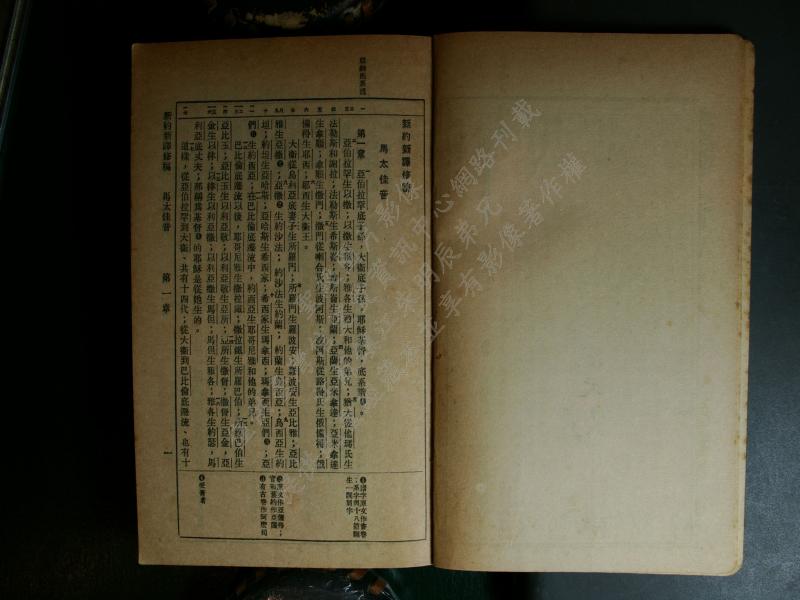 新約新譯修稿
馬太佳音
第一章 亞伯拉罕底子孫，大衛底子孫，耶穌基督，底系譜。
亞伯拉罕生以撒；以撒生雅各；雅各生猶大和他的弟兄；猶大從他瑪氏生
法勒斯和謝拉；法勒斯生希斯崙；希斯崙生亞蘭；亞蘭生亞米拿達；亞米拿達
生拿順；拿順生撒門；撒門從喇合氏生波阿斯；波阿斯從路得氏生俄備得；俄
備得生耶西；耶西生大衛王。
大衛從烏利亞底妻子生所羅門；所羅門生羅波安；羅波安生亞比雅；亞比
雅生亞撒；亞撒生約沙法；約沙法生約蘭；約蘭生烏西亞；烏西亞生約
坦；約坦生亞哈斯；亞哈斯生希西家；希西家生瑪拿西；瑪拿西生亞們；亞
們生約西亞；在巴比倫底遷流中，約西亞生耶哥尼雅和他的弟兄。
巴比倫底遷流以後，耶哥尼雅生撒拉鐵；撒拉鐵生所羅巴伯；所羅巴伯生
亞比玉；亞比玉生以利亞敬；以利亞敬生亞所；亞所生撒督；撒督生亞金；亞
金生以律；以律生以利亞撒；以利亞撒生馬但；馬但生雅各；雅各生約瑟，馬
利亞底丈夫；那稱爲基督的耶穌是從她生的。
這樣，從亞伯拉罕到大衛、共有十四代；從大衛到巴比倫底遷流、也有十
新約新譯修稿 馬太佳音 第一章 一